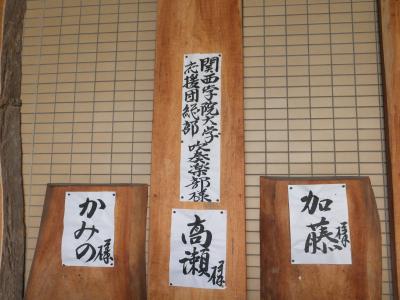 関西学院大学
応援団総部 吹奏楽部様
高瀬様
加藤様
かみの様